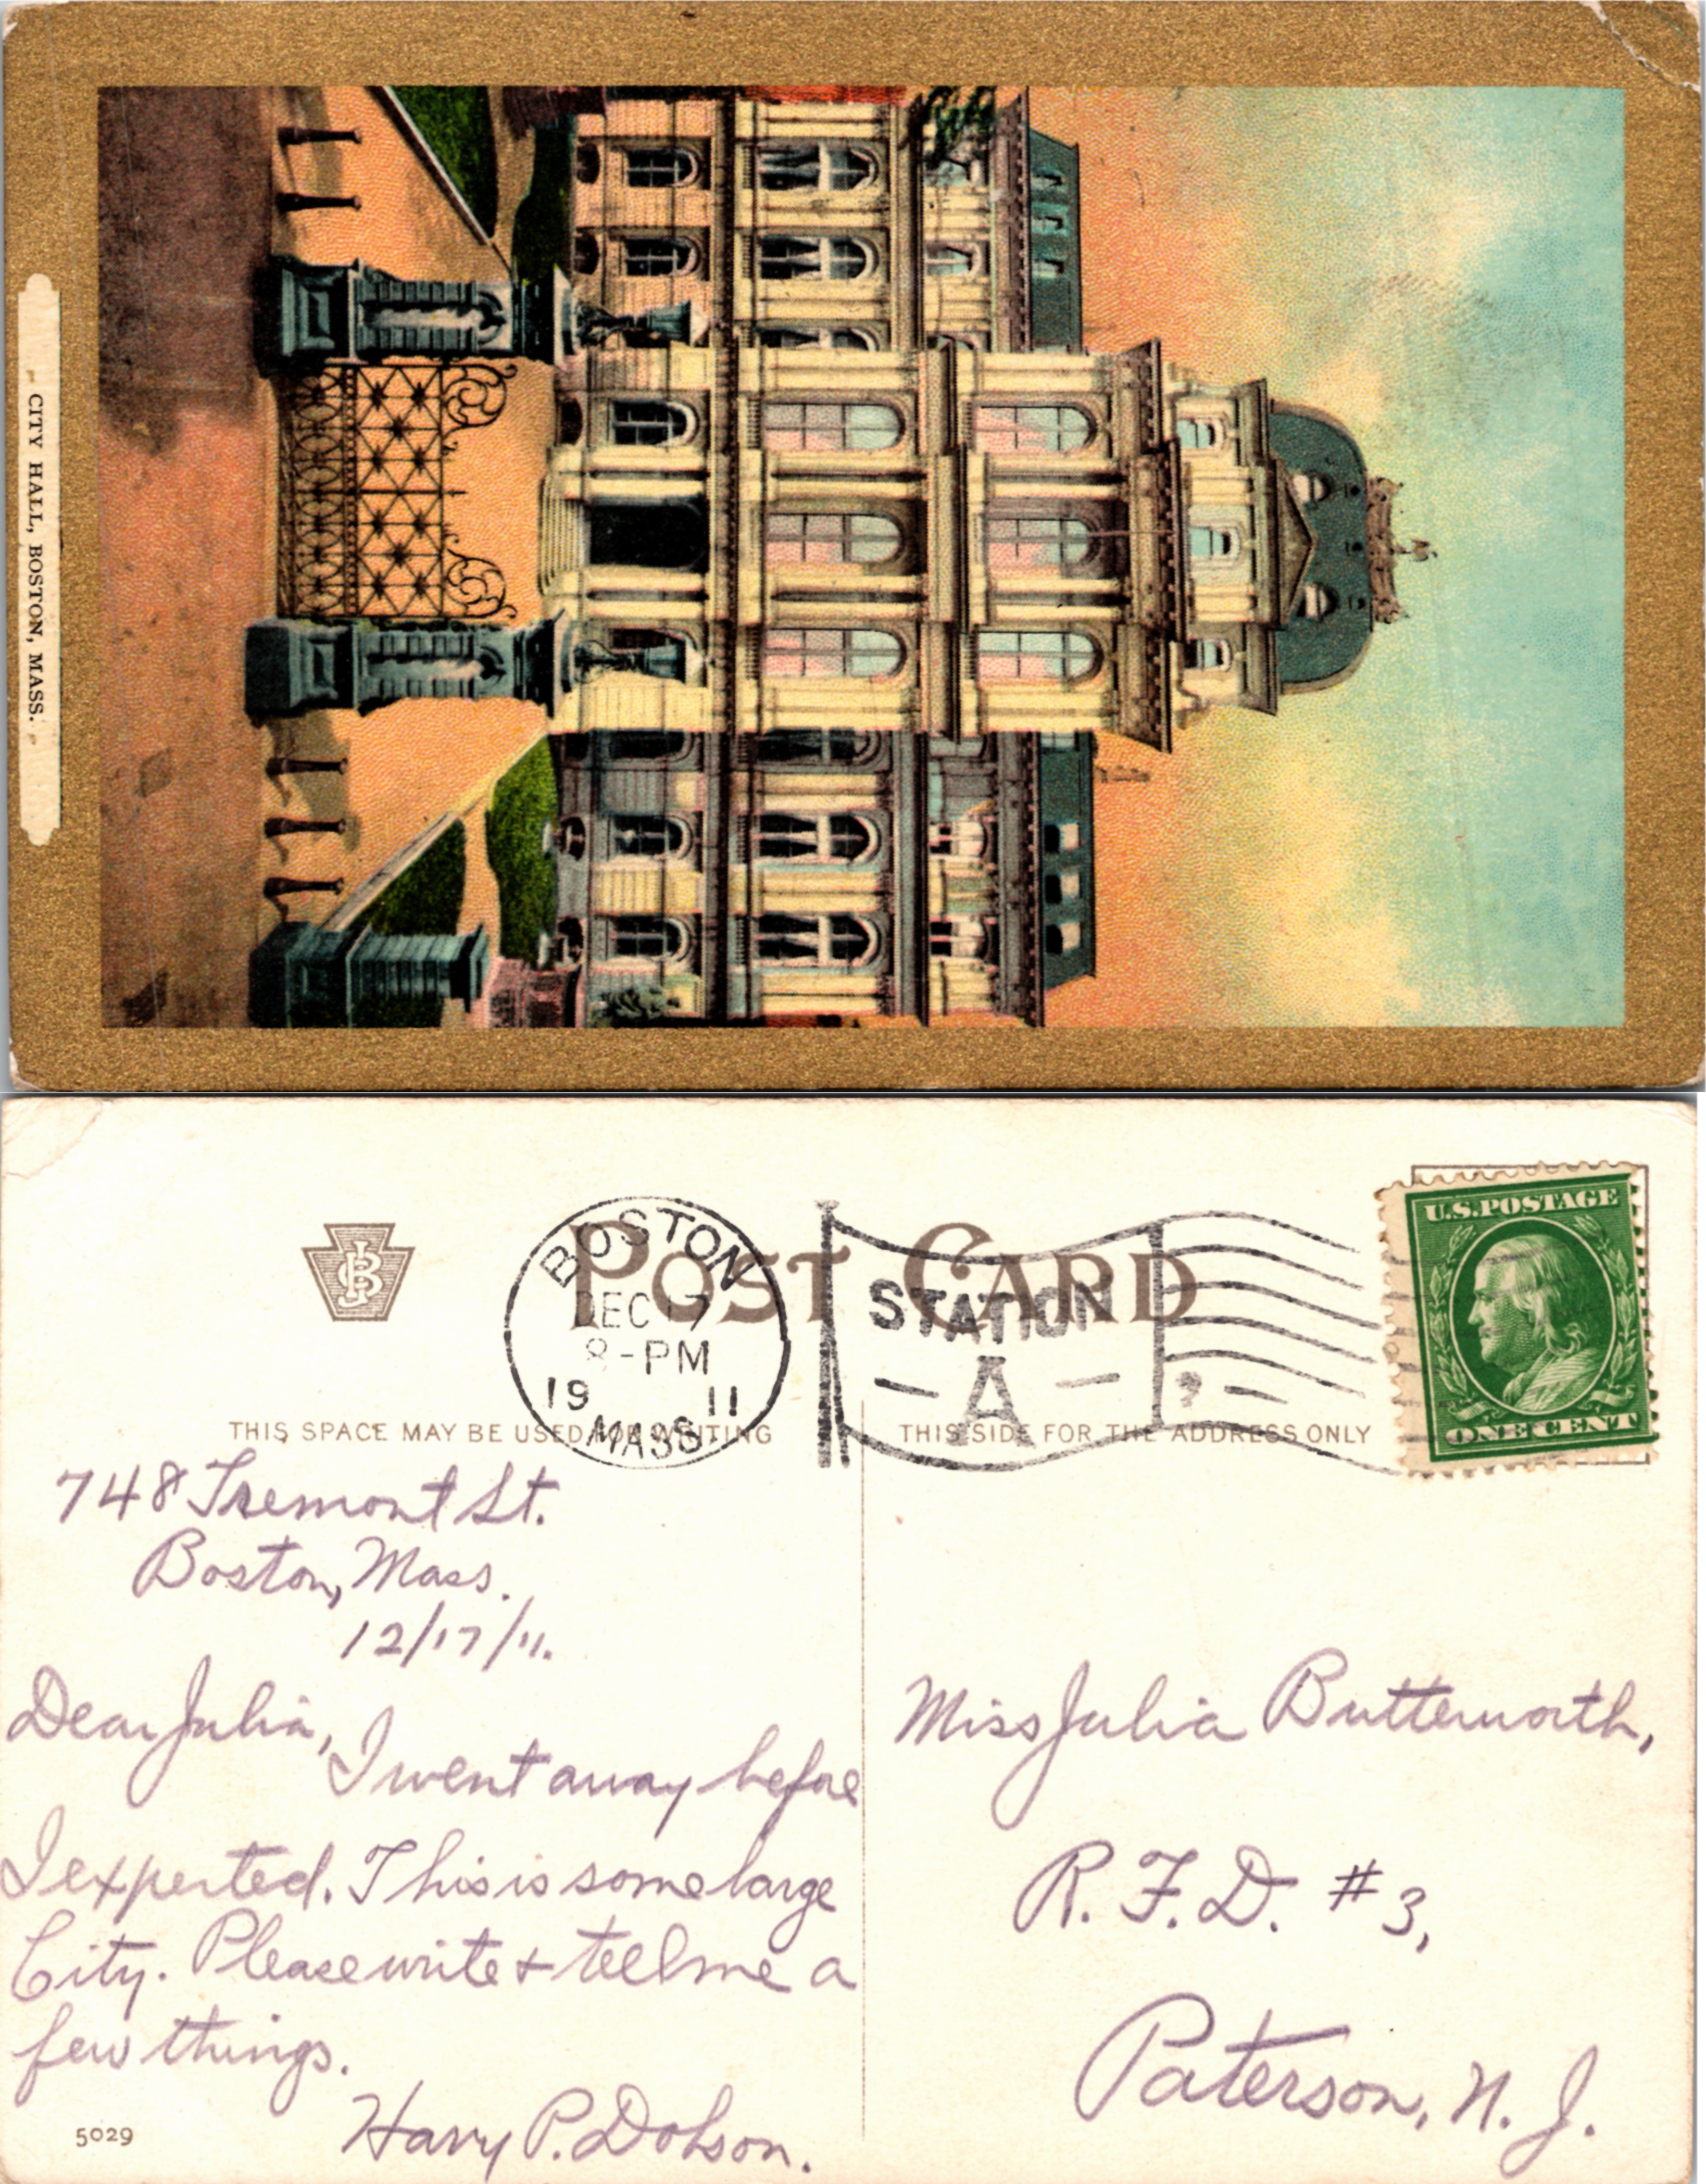 CITY HALL, BOSTON, MASS.
POST CARD
BOSTON
DEC 17
8-PM
19 11
MASS
STATION
A
U.S. POSTAGE
ONE CENT
THIS SPACE MAY BE USED FOR WRITING
THIS SIDE FOR THE ADDRESS ONLY
748 Tremont St.
Boston, Mass.
12/17/11.
Dear Julia,
I went away before
I expected. This is some large
City. Please write & tell me a
few things.
Harry P. Dobson.
5029
Miss Julia Butterworth,
R. F. D. #3,
Paterson, N. J.